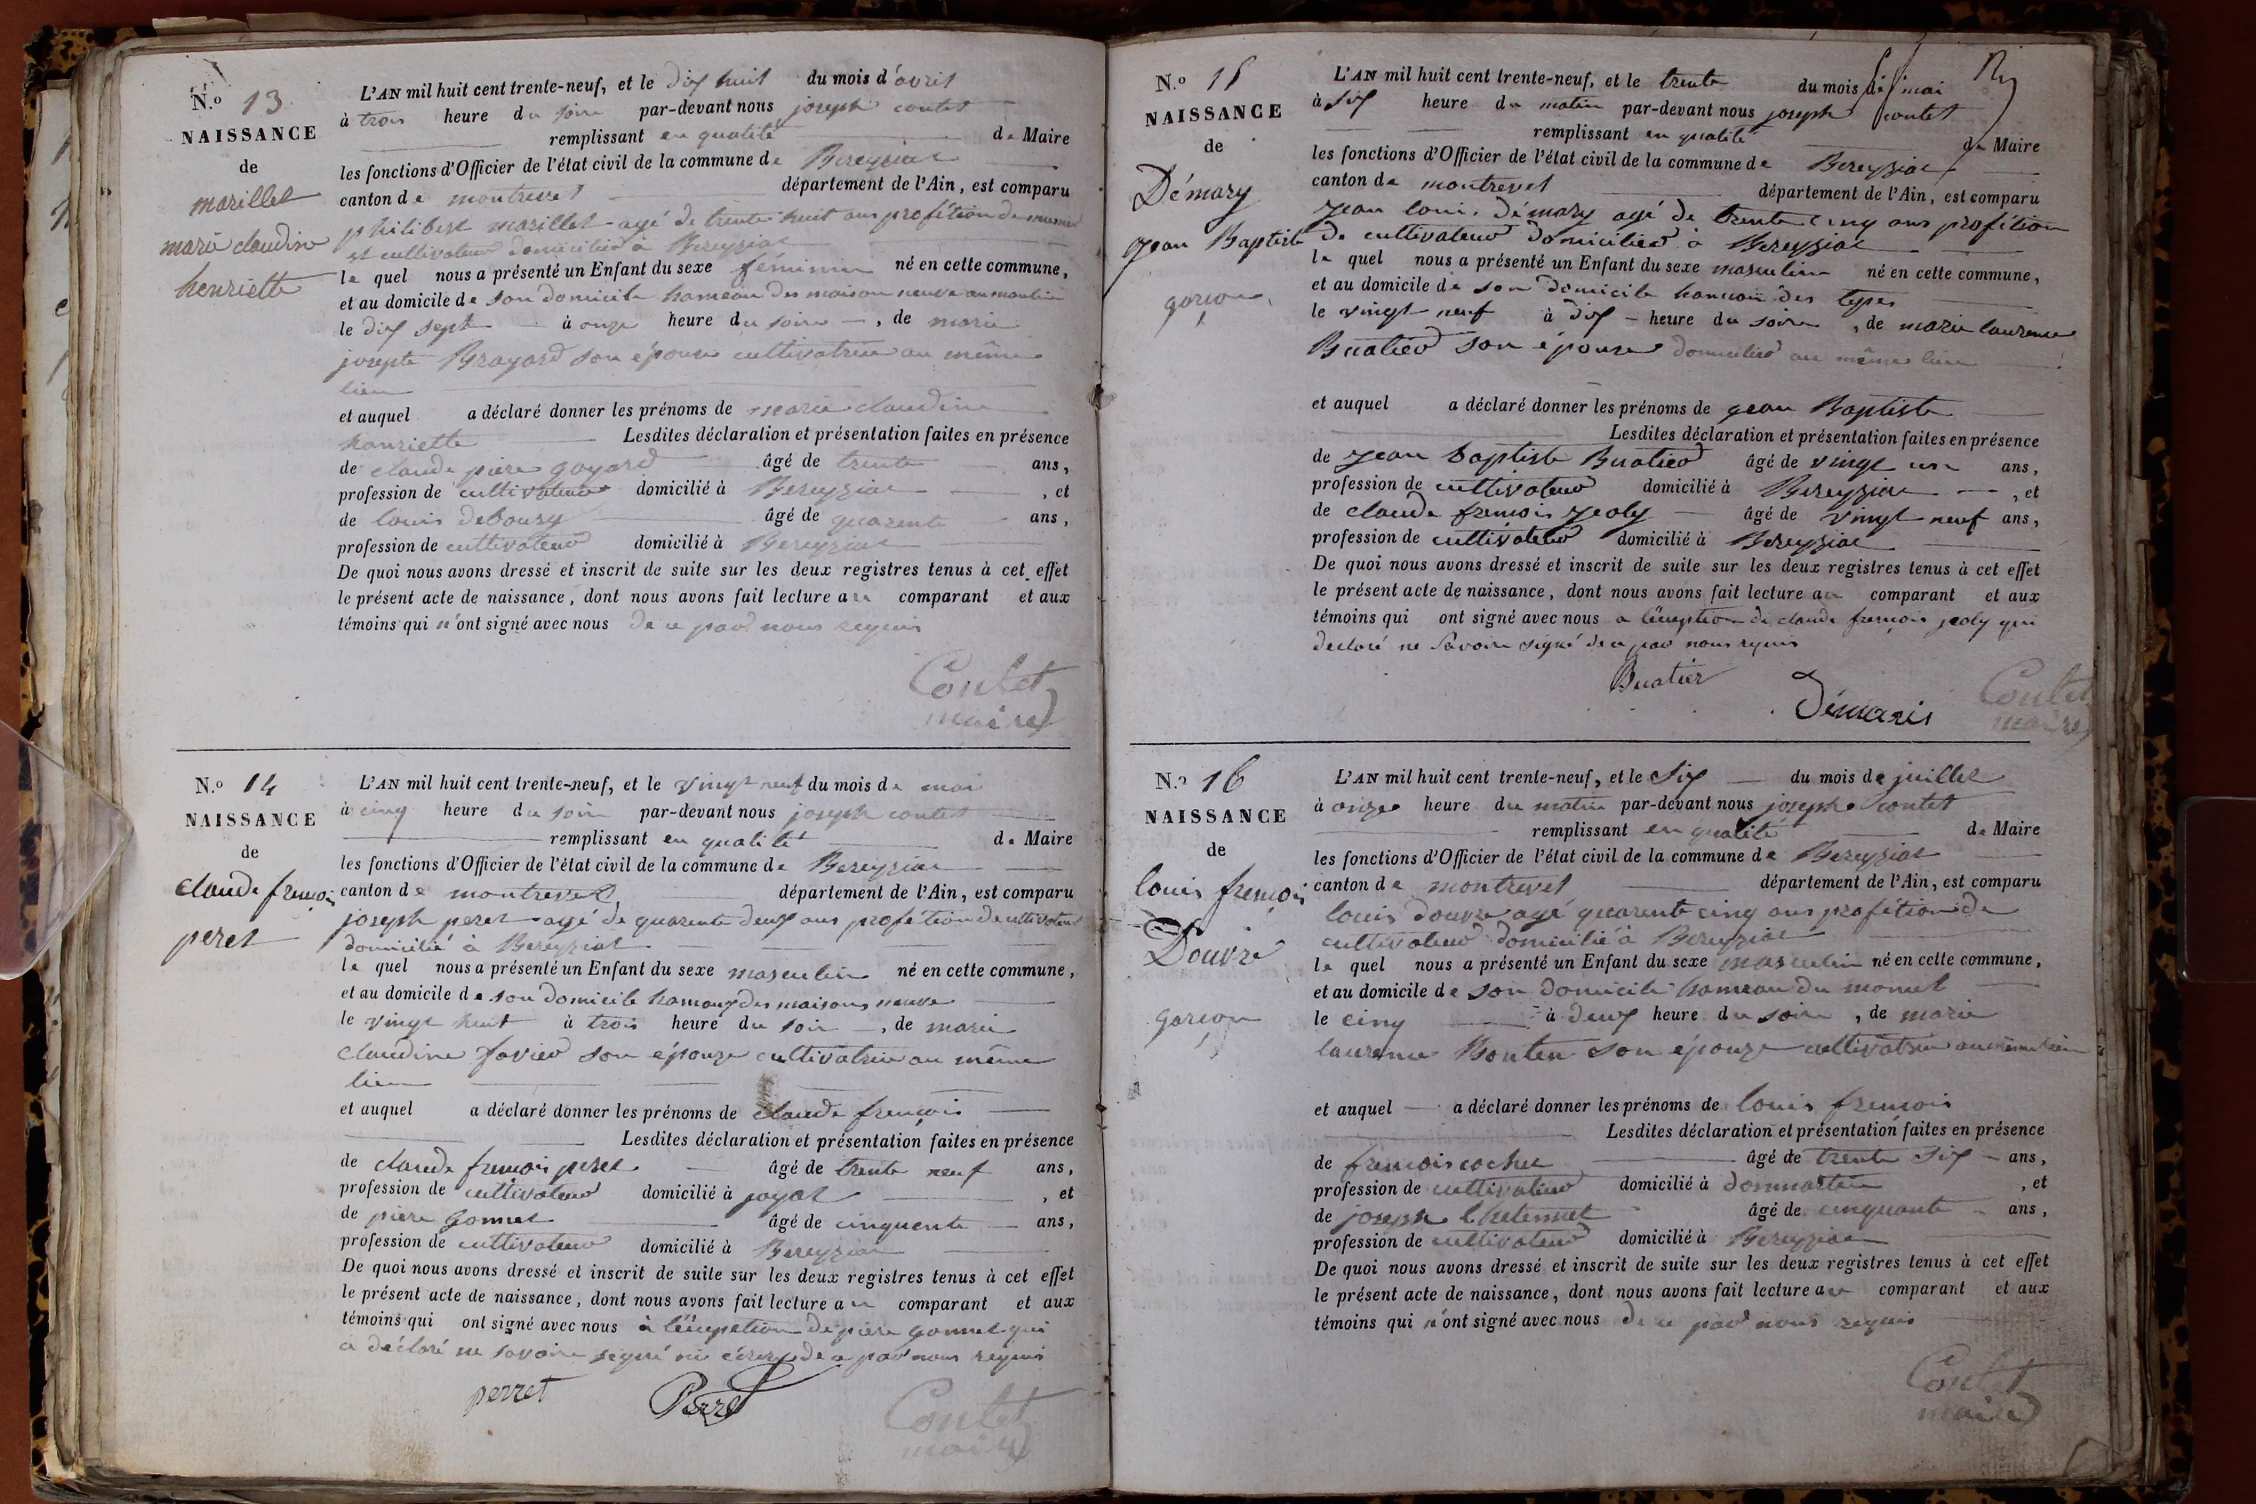 N.o 13
NAISSANCE
de
marillet
marie claudine
henriette
L'AN mil huit cent trente-neuf, et le dix huit du mois d'avril
à trois heure du soire par-devant nous joseph contet
remplissant en qualité de Maire
les fonctions d'Officier de l'état civil de la commune de Bereyziat
canton de montrevet département de l'Ain, est comparu
philibert marillet agé de trente huit ans profétion de
et cultivateur domicilié à Bereyziat
le quel nous a présenté un Enfant du sexe féminin né en cette commune,
et au domicile de son domicile hameau des maison neuve au moulin
le dix sept à onze heure du soire, de marie
josepte Brayard son épouse cultivatrice au même
lieu
et auquel a déclaré donner les prénoms de marie claudine
hanriette Lesdites déclaration et présentation faites en présence
de claude piere goyard âgé de trente ans,
profession de cultivateur domicilié à Bereyziat, et
de louis deboury âgé de quarente ans,
profession de cultivateur domicilié à Bereyziat
De quoi nous avons dressé et inscrit de suite sur les deux registres tenus à cet effet
le présent acte de naissance, dont nous avons fait lecture au comparant et aux
témoins qui n'ont signé avec nous de ce par nous requis
Contet
maire
N.o 14
NAISSANCE
de
claude françois
peret
L'AN mil huit cent trente-neuf, et le vingt neuf du mois de mai
à cinq heure du soir par-devant nous joseph contet
remplissant en qualité de Maire
les fonctions d'Officier de l'état civil de la commune de Bereyziat
canton de montrevet département de l'Ain, est comparu
joseph peret agé de quarente deux ans profétion de cultivateur
domicilié à Bereyziat
le quel nous a présenté un Enfant du sexe masculin né en cette commune,
et au domicile de son domicile hamaux des maisons neuve
le vingt huit à trois heure du soir, de marie
claudine favier son épouze cultivatrice au même
lieu
et auquel a déclaré donner les prénoms de claude françois
Lesdites déclaration et présentation faites en présence
de claude françois peret âgé de trente neuf ans,
profession de cultivateur domicilié à jayat, et
de piere gonnet âgé de cinquente ans,
profession de cultivateur domicilié à Bereyziat
De quoi nous avons dressé et inscrit de suite sur les deux registres tenus à cet effet
le présent acte de naissance, dont nous avons fait lecture au comparant et aux
témoins qui ont signé avec nous à l'éxception de piere gonnet qui
a déclaré ne savoire signé ni écrire de ce par nous requis
perret Perret Contet
maire
N.o 15
NAISSANCE
de
Démary
jean Baptiste
garçon
L'AN mil huit cent trente-neuf, et le trente du mois de mai
à six heure du matin par-devant nous joseph contet
remplissant en qualité de Maire
les fonctions d'Officier de l'état civil de la commune de Bereyziat
canton de montrevet département de l'Ain, est comparu
jean loui. démary agé de trente cinq ans profétion
de cultivateur domicilier à Bereyziat
le quel nous a présenté un Enfant du sexe masculin né en cette commune,
et au domicile de son domicile hameau des
le vingt neuf à dix heure du soire, de marie laurence
Buatier son épouze domicilier au même lieu
et auquel a déclaré donner les prénoms de jean Baptiste
Lesdites déclaration et présentation faites en présence
de jean baptiste Buatier âgé de vingt un ans,
profession de cultivateur domicilié à Bereyziat, et
de claude françois jeoly âgé de vingt neuf ans,
profession de cultivateur domicilié à Bereyziat
De quoi nous avons dressé et inscrit de suite sur les deux registres tenus à cet effet
le présent acte de naissance, dont nous avons fait lecture au comparant et aux
témoins qui ont signé avec nous a l'éxception de claude françois jeoly qui
declaré ne savoire signé de ce par nous requis
Buatier Démaris Contet
maire
N.o 16
NAISSANCE
de
louis françois
Douvre
garçon
L'AN mil huit cent trente-neuf, et le Six du mois de juillet
à onze heure du matin par-devant nous joseph contet
remplissant en qualité de Maire
les fonctions d'Officier de l'état civil de la commune de Bereyziat
canton de montrevet département de l'Ain, est comparu
louis douvre agé quarente cinq ans profétion de
cultivateur domicilié à Bereyziat
le quel nous a présenté un Enfant du sexe masculin né en cette commune,
et au domicile de son domicile hameau du monet
le cinq à deux heure du soire, de marie
laurence Bonten son épouze cultivatrice au même lieu
et auquel a déclaré donner les prénoms de louis françois
Lesdites déclaration et présentation faites en présence
de françois cochet âgé de trente six ans,
profession de cultivateur domicilié à dommartin, et
de joseph Chatennet âgé de cinquante ans,
profession de cultivateur domicilié à Bereyziat
De quoi nous avons dressé et inscrit de suite sur les deux registres tenus à cet effet
le présent acte de naissance, dont nous avons fait lecture au comparant et aux
témoins qui n'ont signé avec nous de ce par nous requis
Contet
maire